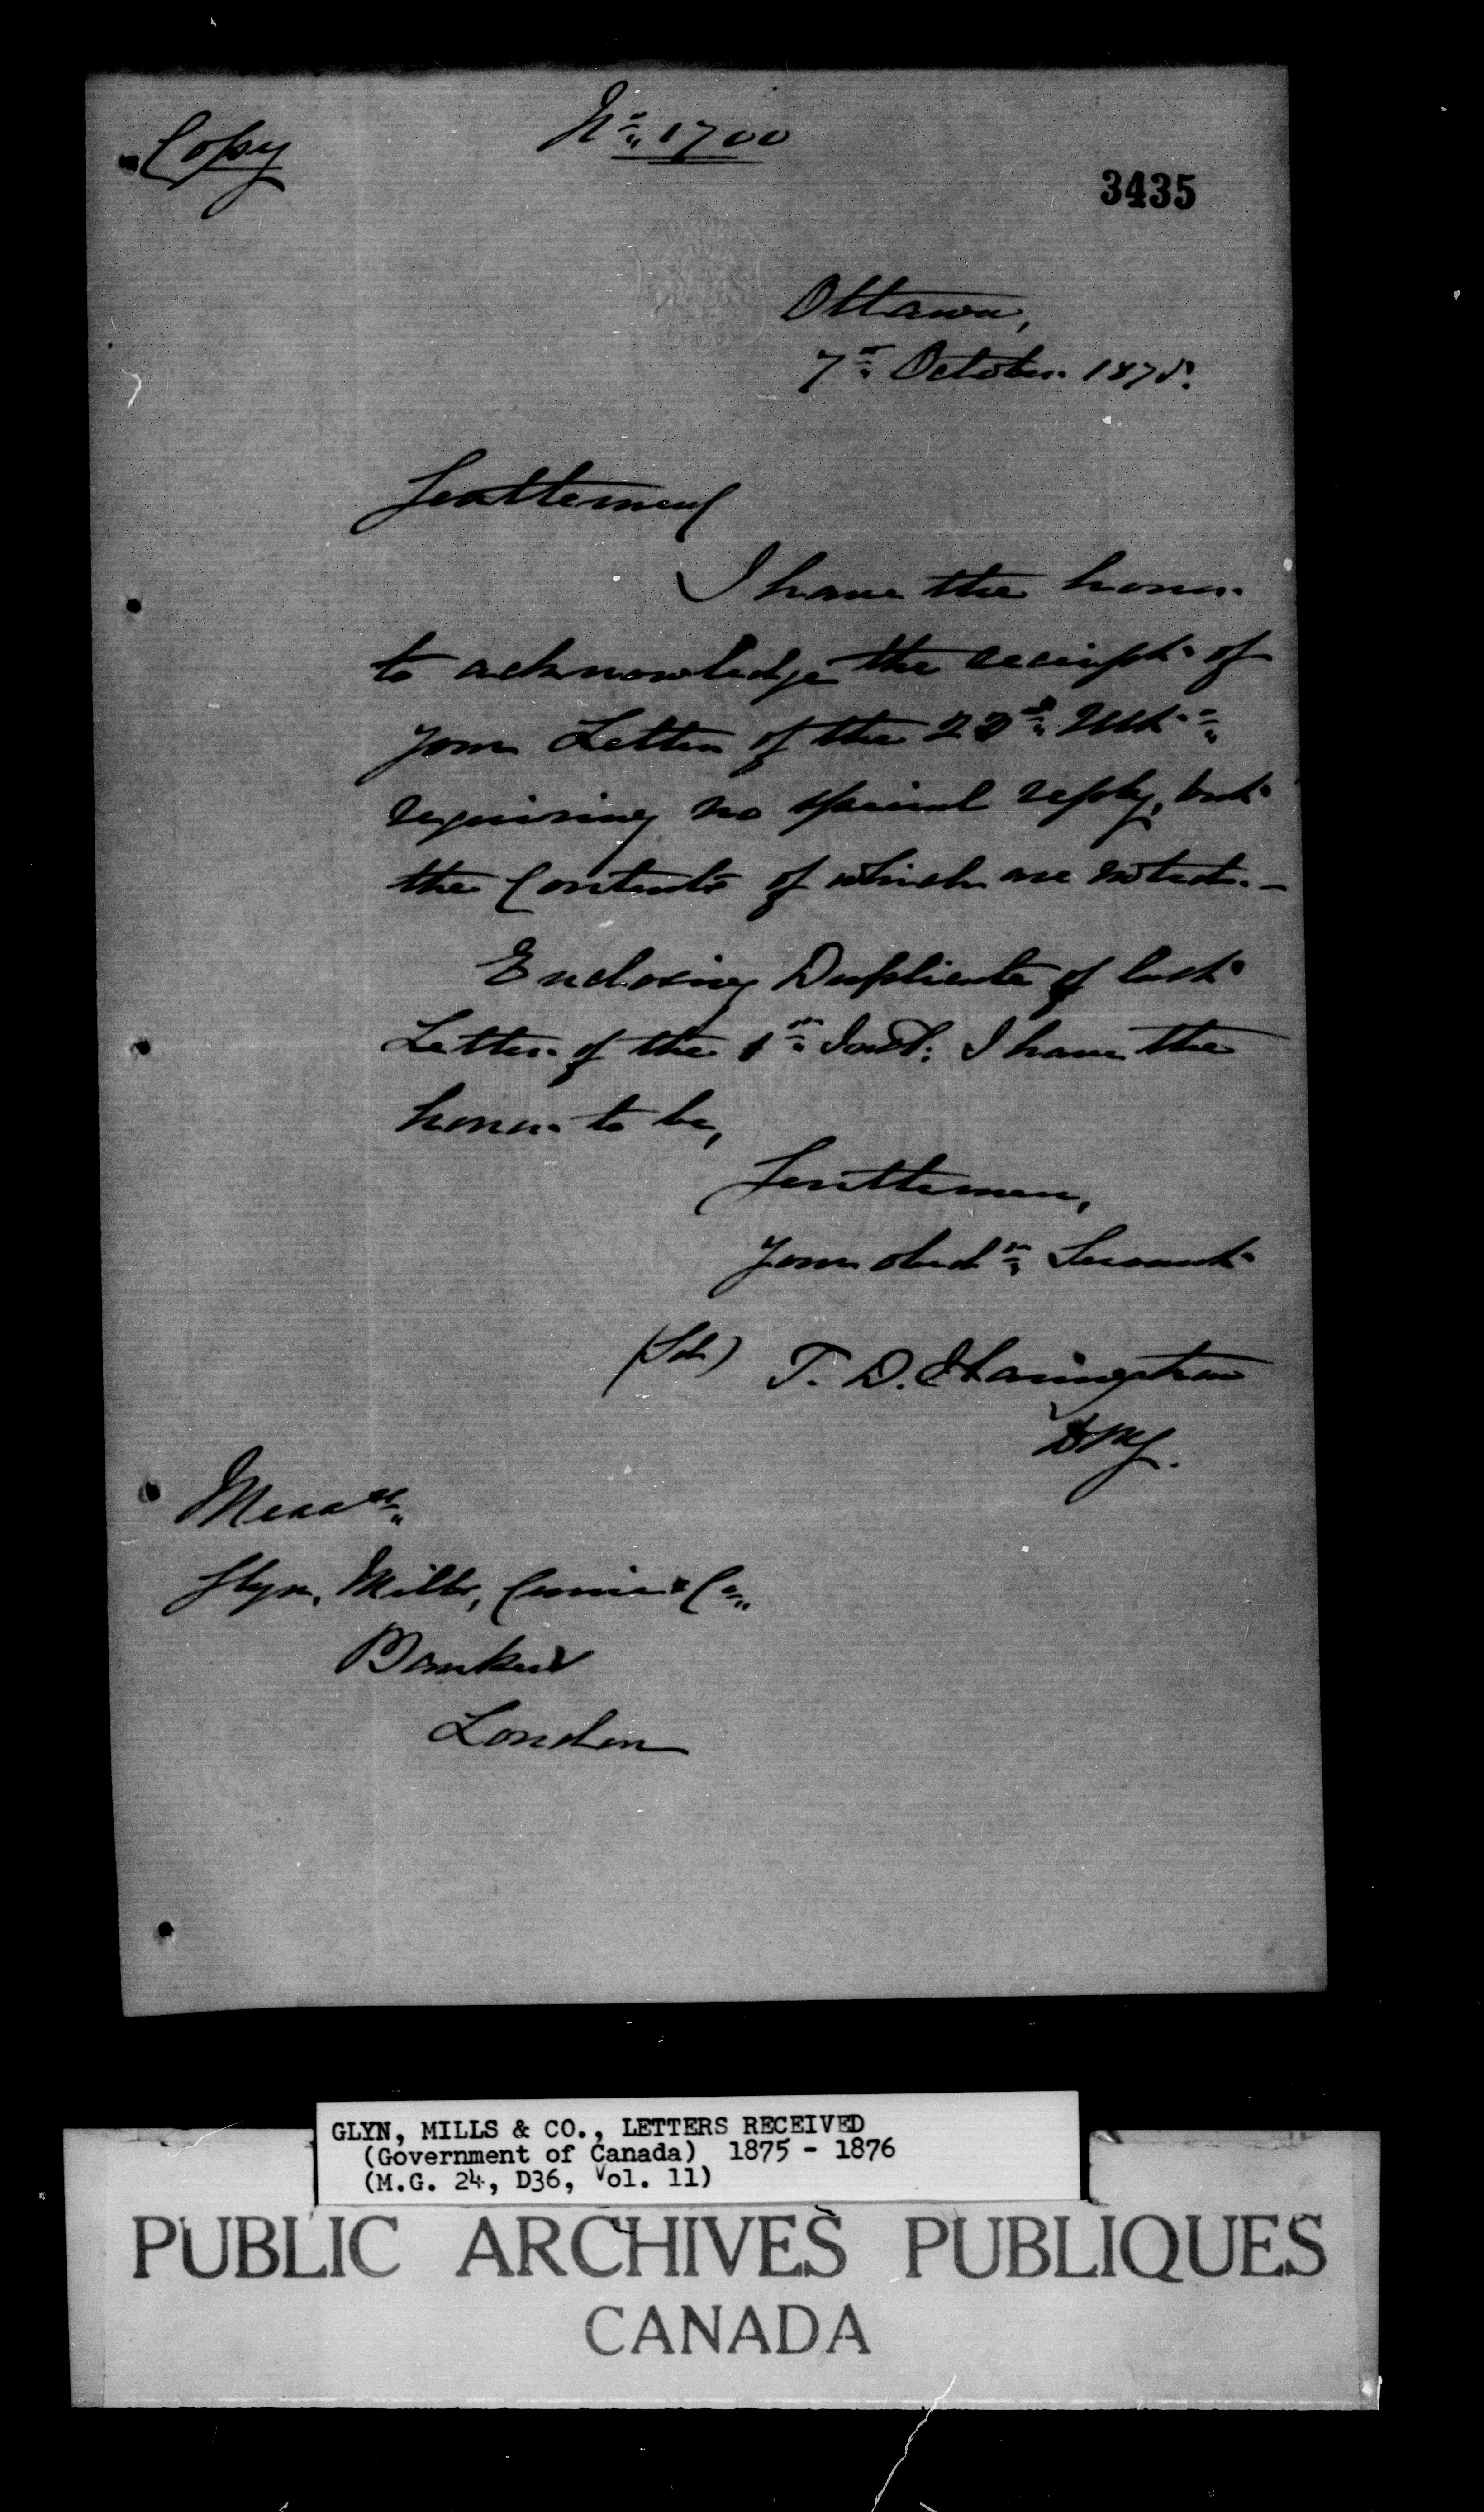 Copy
No. 1700
3435
Ottawa,
7th October 1875.
Gentlemen
I have the honor
to acknowledge the receipt of
your Letter of the 22d Ulto.
requiring no special reply, but
the Contents of which are noted.—
Enclosing Duplicate of last
Letter of the 1st Inst: I have the
honor to be,
Gentlemen,
Your obedt. Servant
(Sd) T. D. Harington
DMG.
Messrs.
Glyn, Mills, Currie & Co.
Bankers
London
GLYN, MILLS & CO., LETTERS RECEIVED
(Government of Canada) 1875 - 1876
(M.G. 24, D36, Vol. 11)
PUBLIC ARCHIVES PUBLIQUES
CANADA